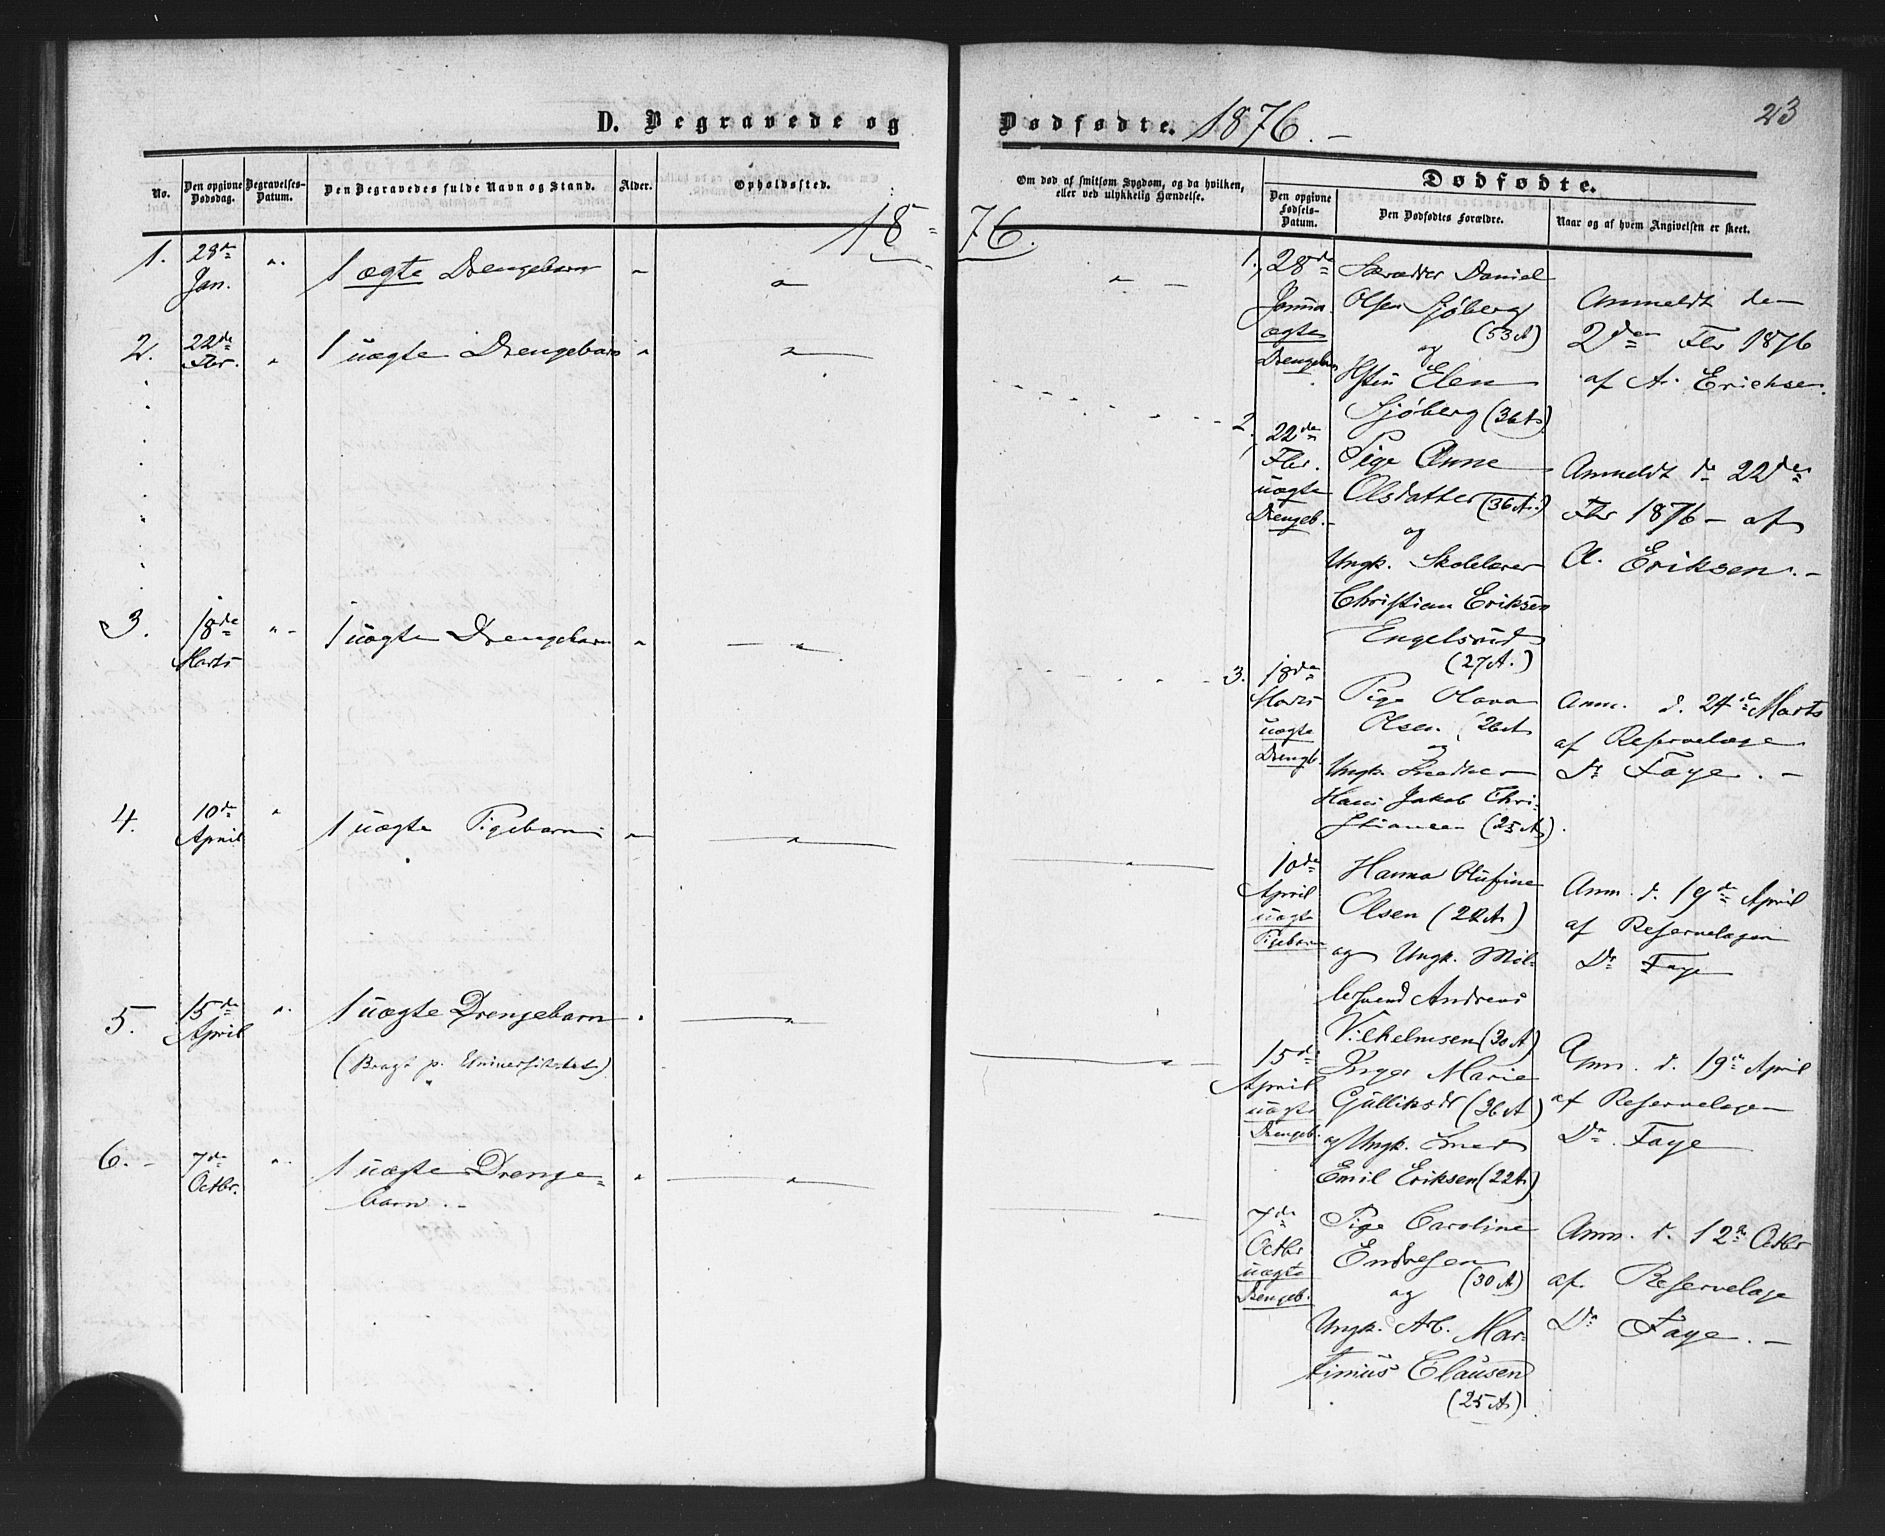 D. Begravede og
Dødfødte. 1876. –
23
No.
Den opgivne Dødsdag.
Begravelses-Datum.
Den Begravedes fulde Navn og Stand.
Alder.
Opholdssted.
Om død af smitsom Sygdom, og da hvilken,
eller ved ulykkelig Hændelse.
Dødfødte.
Den opgivne Fødsels-Datum.
Den Dødfødtes Forældre.
Naar og af hvem Angivelsen er skeet.
18 = 76.
1. 28de Jan. " 1 ægte Drengebarn " "
2. 22de Fbr. " 1 uægte Drengebarn " "
3. 18de Marts " 1 uægte Drengebarn " "
4. 10de April " 1 uægte Pigebarn " "
5. 15de April " 1 uægte Drengebarn " "
(Bragt p. Universitetet)
6. 7de Octbr. " 1 uægte Drenge=
barn. –
1. 28de
Janua
ægte
Drengebarn
Daniel
Olsen Sjøberg
(53 A)
og
Hstru Elen
Sjøberg (36 A)
Anmeldt den
2den Fbr 1876
af A. Erichsen.
2. 22de
Fbr.
uægte
Drengeb.
Pige Anne
Olsdatter (36 A.)
og
Ungk. Skolelærer
Christian Eriksen
Engelsrud
(27 A.)
Anmeldt d. 22den
Fbr 1876 – af
A. Eriksen. –
3. 18de
Marts
uægte
Drengb.
Pige Olava
Olsen. (26 A
og
Ungk. Snedker
Hans Jakob Chri-
stiansen (25 A).
Anm. d. 24de Marts
af Reservelæge
Dr Faye. –
10de
April
uægte
Pigebarn
Hanna Olufine
Olsen (22 A)
og Ungk. Møl-
lersvend Andreas
Vilhelmsen (30 A)
Anm. d. 19de April
af Reservelægen
Dr Faye
15de
April
uægte
Drengeb.
Inger Marie
Gulliksdr (36 A)
og Ungk. Smed
Emil Eriksen (22 A)
Anm. d. 19de April
af Reservelægen
Dr. Faye
7de
Octbr
uægte
Drengeb.
Pige Caroline
Endresen
(30 A)
og
Ungk. Arb. Mar-
tinius Clausen
(25 A)
Anm. d. 12de Octbr
af. Reservelæge
Dr Faye. –